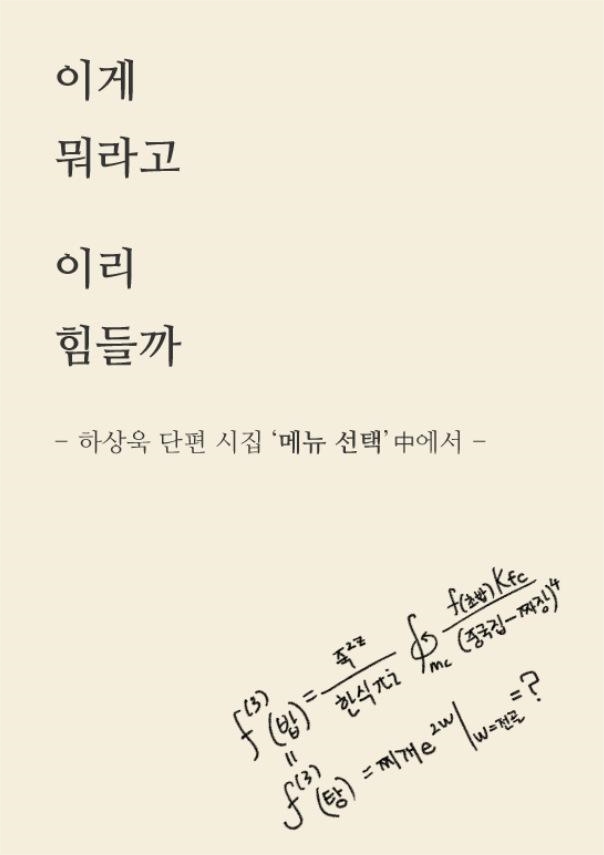 이게
뭐라고
이리
힘들까
- 하상욱 단편 시집 ‘메뉴 선택’ 中에서 -
f⁽³⁾(밥) = 죽²ᶻ / 한식πi ∮mc f(초밥)Kfc / (중국집-짜장)⁴
=
f⁽³⁾(탕) = 찌개e²ʷ|w=전골 = ?